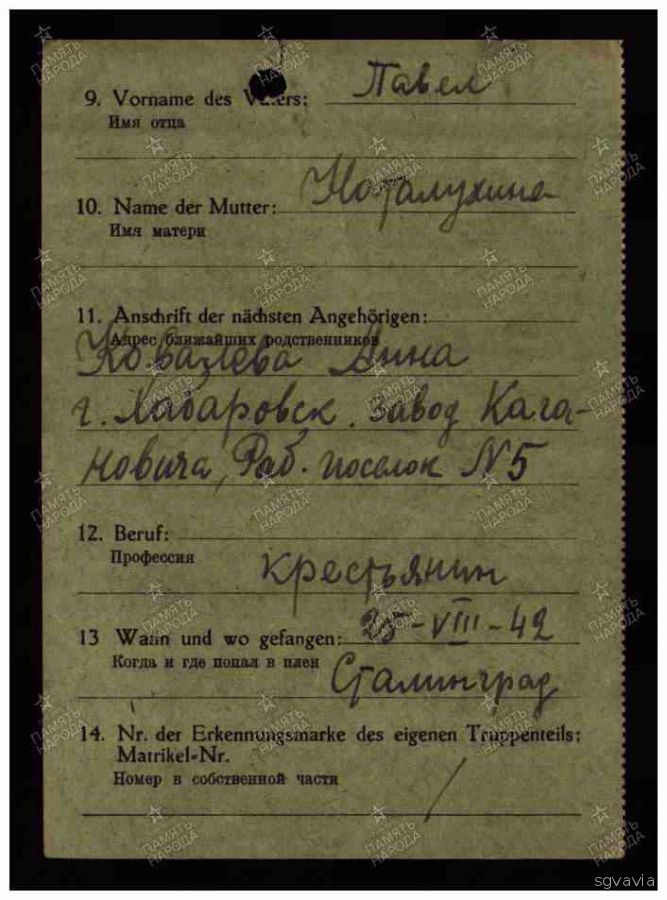 9. Vorname des Vaters: Павел
Имя отца
10. Name der Mutter: Наталухина
Имя матери
11. Anschrift der nächsten Angehörigen:
Адрес ближайших родственников
Ковалева Анна
г. Хабаровск. завод Кага-
новича, Раб. поселок N5
12. Beruf:
Профессия
крестьянин
13 Wann und wo gefangen: 25-VIII-42
Когда и где попал в плен
Сталинград
14. Nr. der Erkennungsmarke des eigenen Truppenteils:
Matrikel-Nr.
Номер в собственной части
/
ПАМЯТЬ НАРОДА
sgvavia